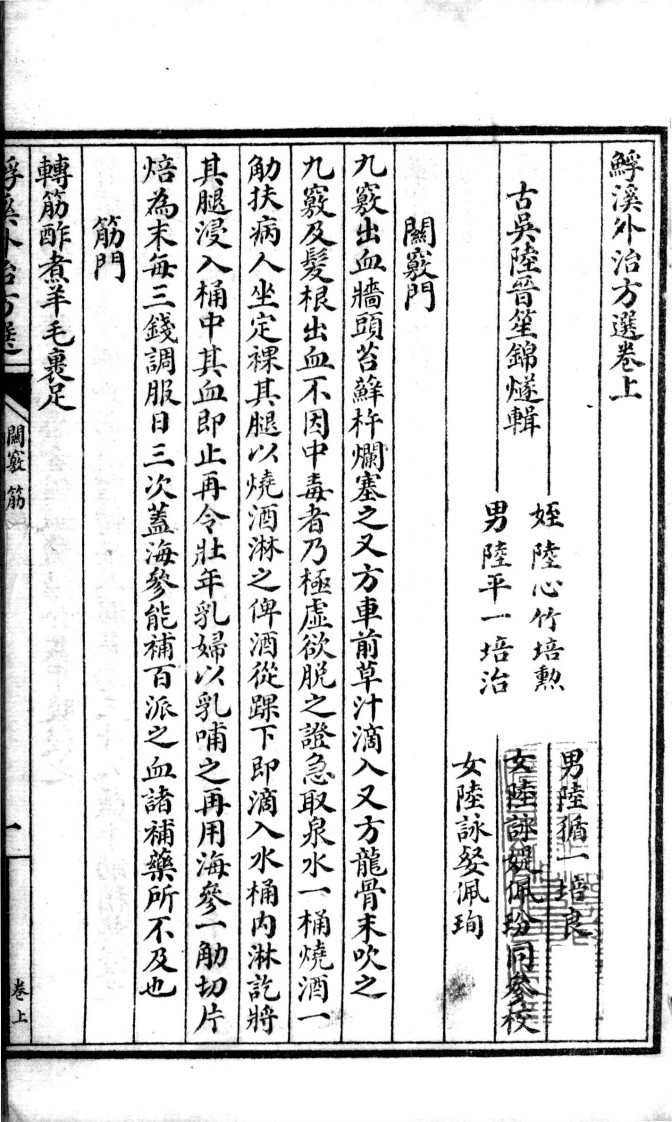 鯚溪外治方選卷上
古吳陸晉笙錦燧輯
姪陸心竹培勲
男陸平一培治
男陸循一培良
女陸詠媞佩玢同參校
女陸詠婗佩珣
關竅門
九竅出血牆頭苔蘚杵爛塞之又方車前草汁滴入又方龍骨末吹之
九竅及髮根出血不因中毒者乃極虛欲脫之證急取泉水一桶燒酒一
觔扶病人坐定裸其腿以燒酒淋之俾酒從踝下即滴入水桶內淋訖將
其腿浸入桶中其血即止再令壯年乳婦以乳哺之再用海參一觔切片
焙為末每三錢調服日三次蓋海參能補百派之血諸補藥所不及也
筋門
轉筋酢煮羊毛裹足
外治方選
關竅 筋
一
卷上